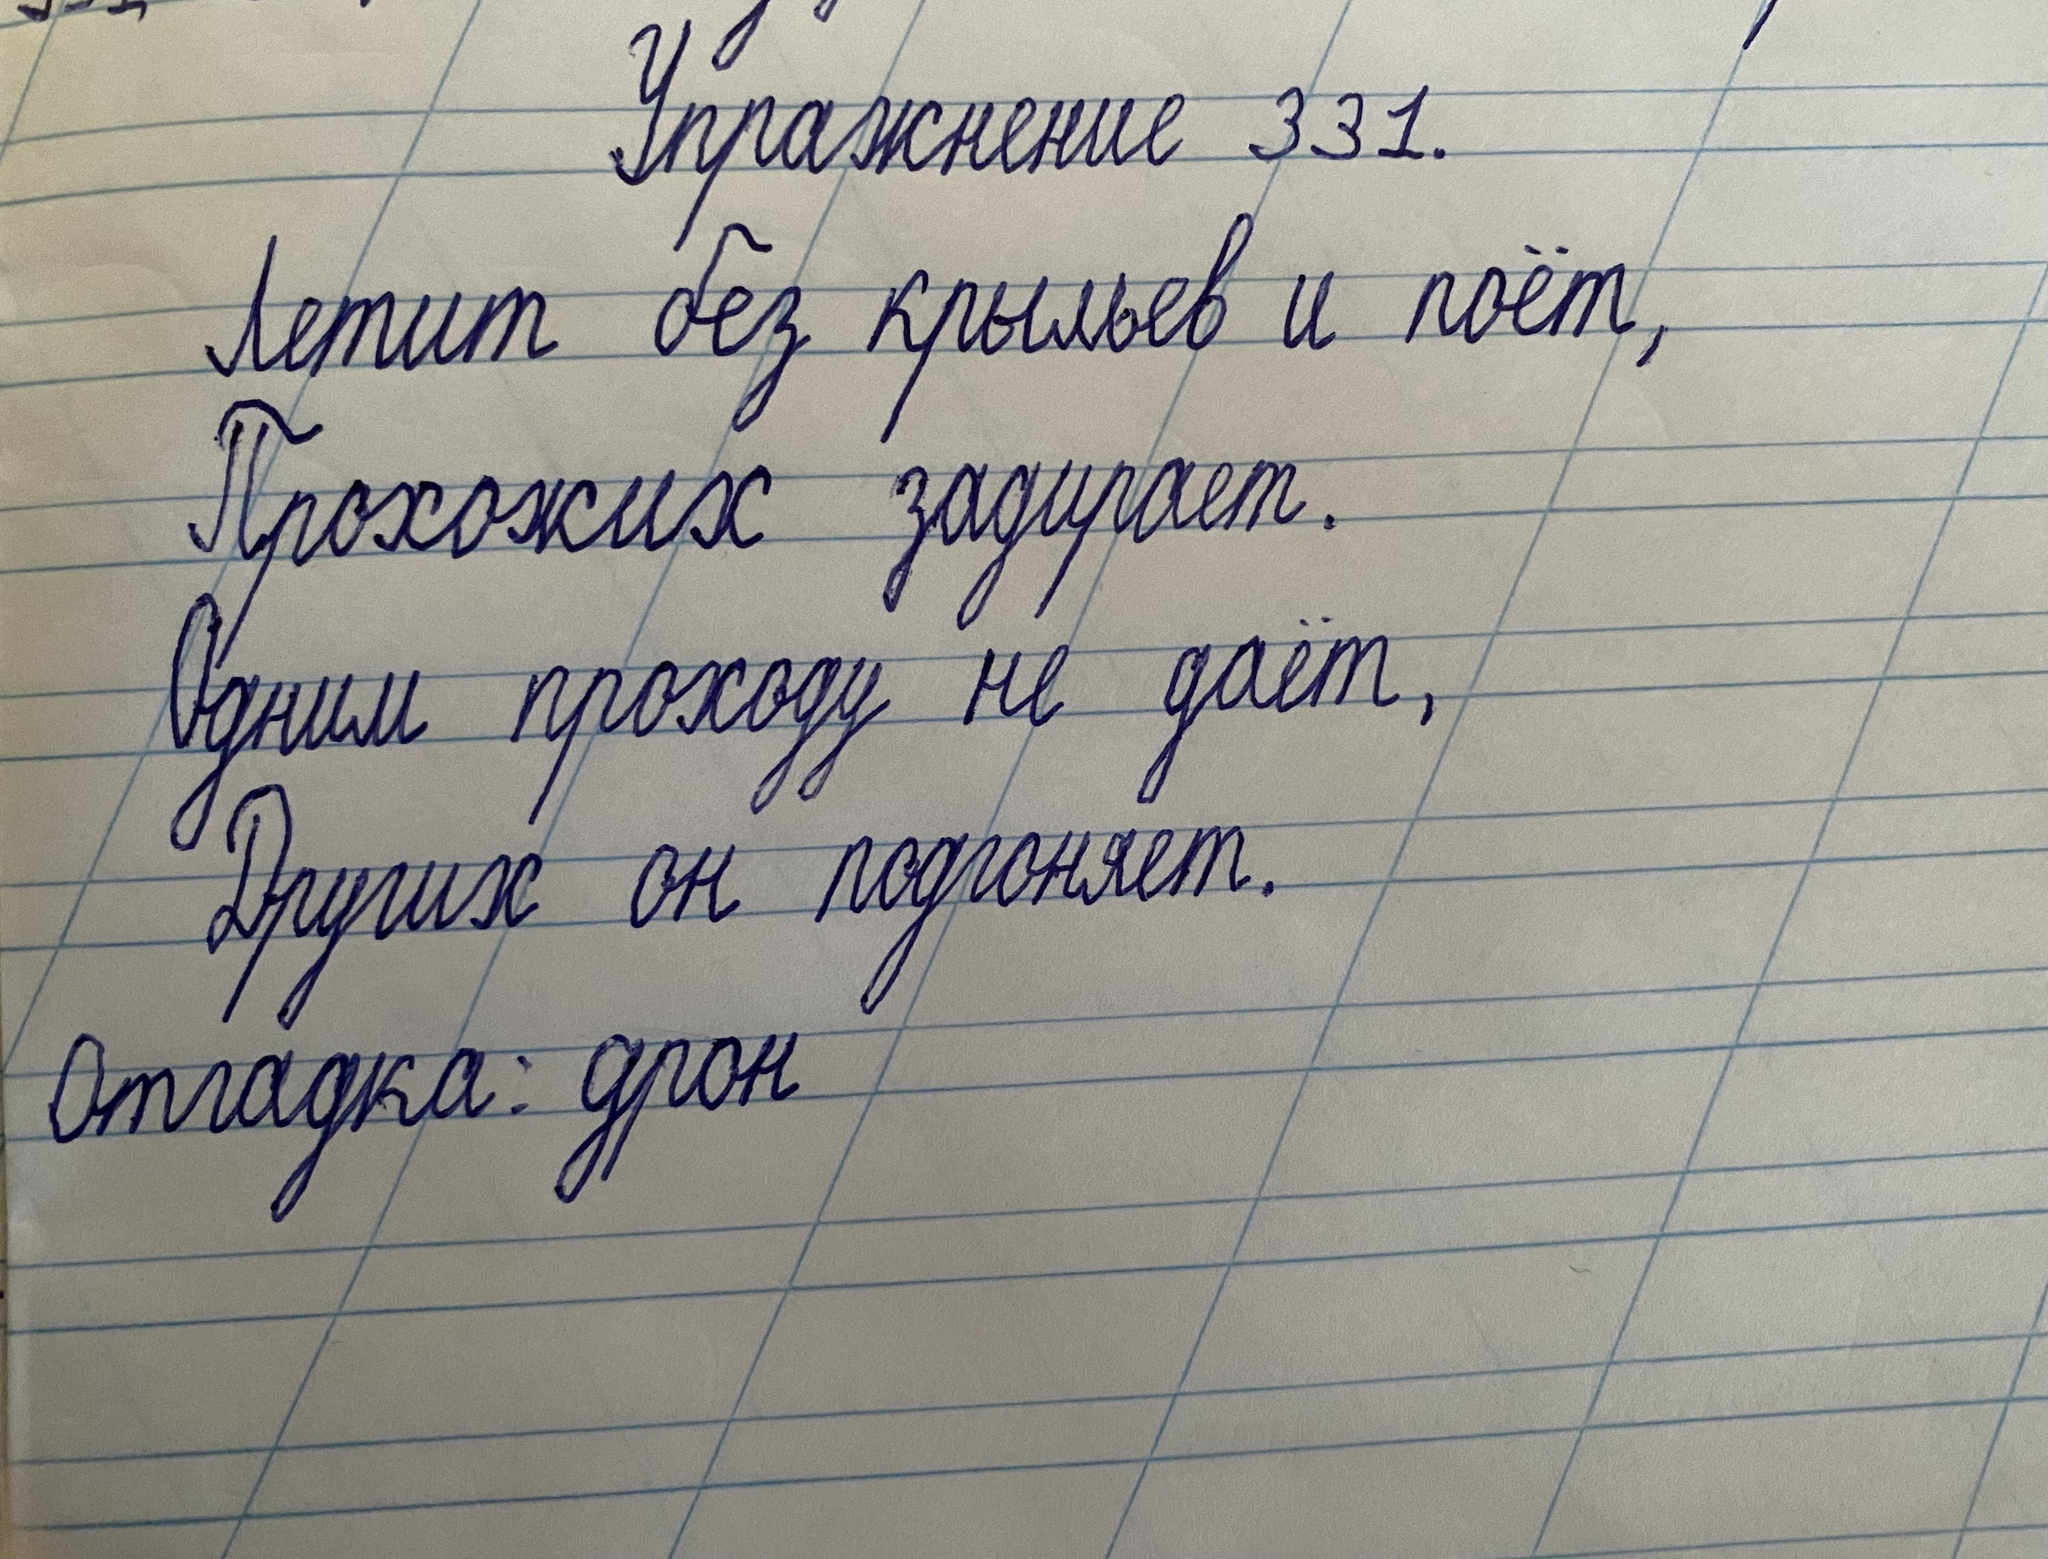 Упражнение 331.
Летит без крыльев и поёт,
Прохожих задирает.
Одним проходу не даёт,
Других он подгоняет.
Отгадка: дрон